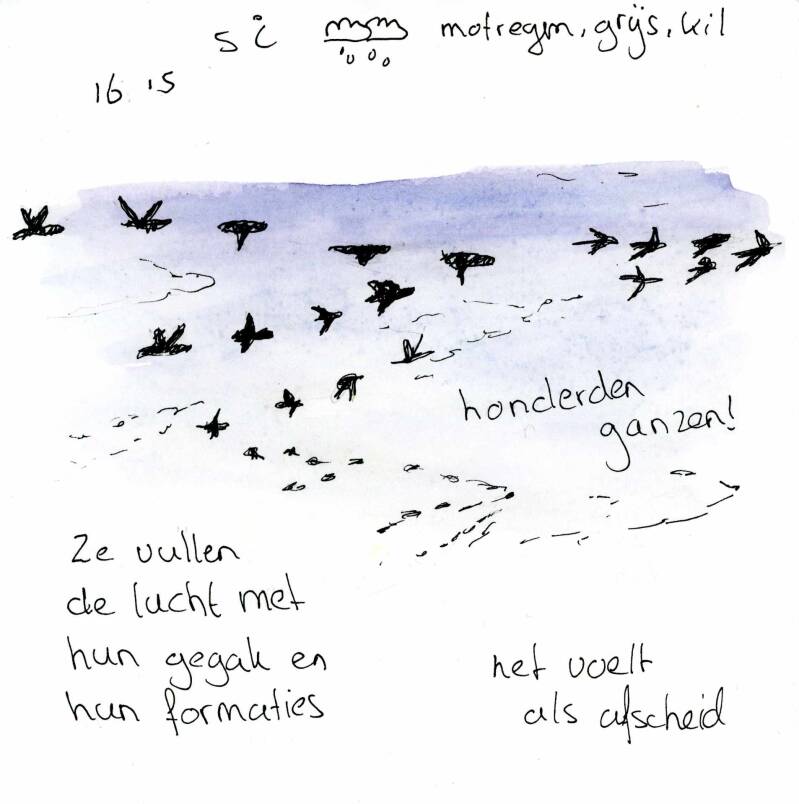 5 °C motregen, grijs, kil
16 15
honderden
ganzen!
Ze vullen
de lucht met
hun gegak en
hun formaties
het voelt
als afscheid